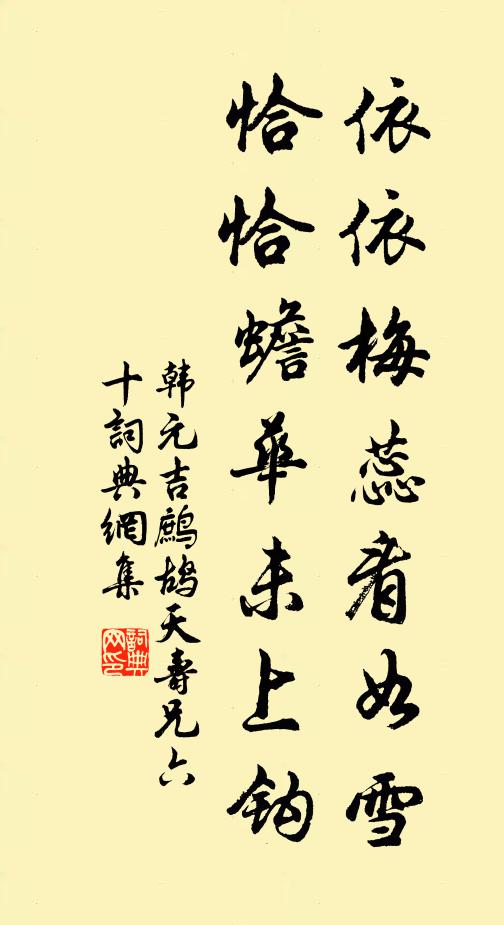 依依梅蕊看如雪
恰恰蟾華未上鈎
韩元吉鷓鴣天壽兄六
十詞典網集
詞典
网印